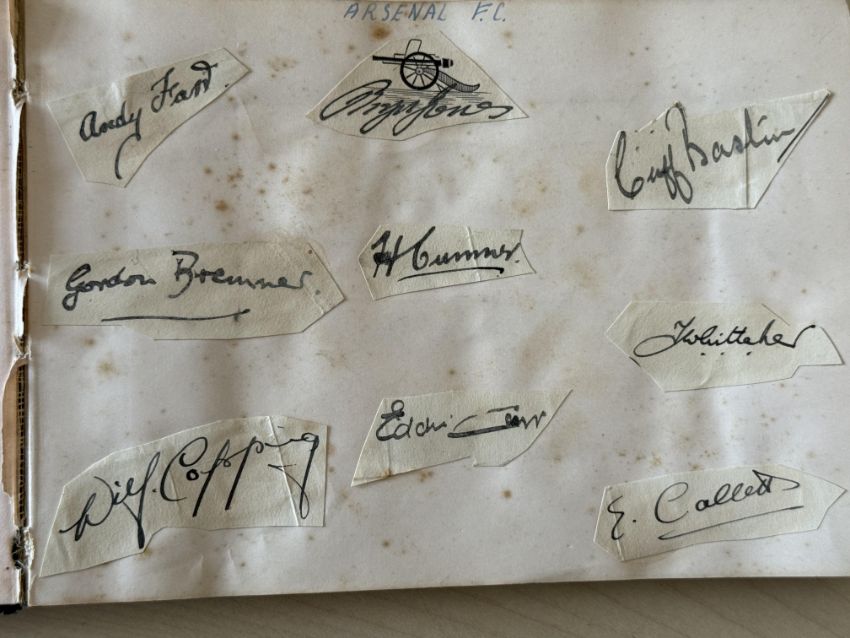 ARSENAL F.C.
Andy Farr.
Bryn Jones
Cliff Bastin
Gordon Bremner.
H Cumner.
T Whittaker
Wilf. Copping
Eddie Carr
E. Collett